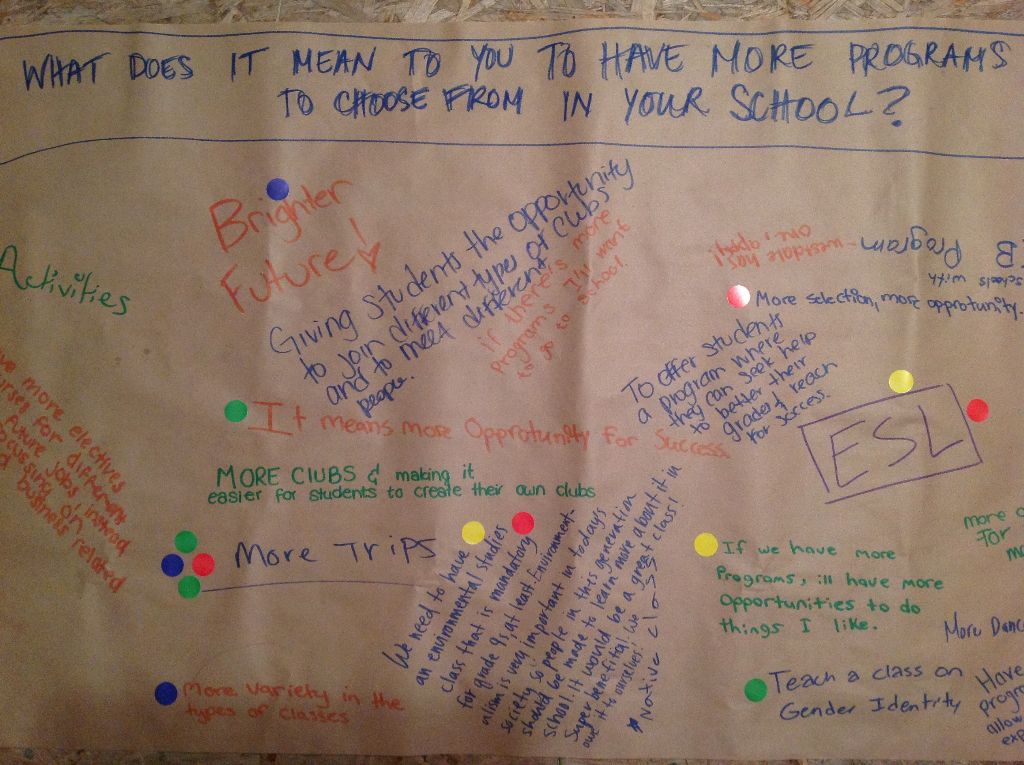 WHAT DOES IT MEAN TO YOU TO HAVE MORE PROGRAMS
TO CHOOSE FROM IN YOUR SCHOOL?
Brighter
Future!
Activities
Giving students the opportunity
to join different types of clubs
and to meet different
people.
if there's more
Programs I'll want
to go to
school!
westdale has
one, i apol
Program
schools with
More selection, more opprotunity.
To offer students
a program where
they can seek help
to better their
grades & reach
for success.
ESL
It means more Opprotunity for Success
MORE CLUBS & making it
easier for students to create their own clubs
more electives
for different
future jobs instead
focusing on
business related
More Trips
We need to have
an environmental studies
class that is mandatory
for grade 9s, at least. Environment-
alism is very important in today's
society so people in this generation
should be made to learn more about it in
school. It would be a great class!
Super benefitial! We
owe it to ourselves!
Native class
If we have more
Programs, i'll have more
Opportunities to do
things I like.
more
FOR
More Danc
Teach a class on
Gender Identity
Have
progr
allow
exp
More variety in the
types of classes